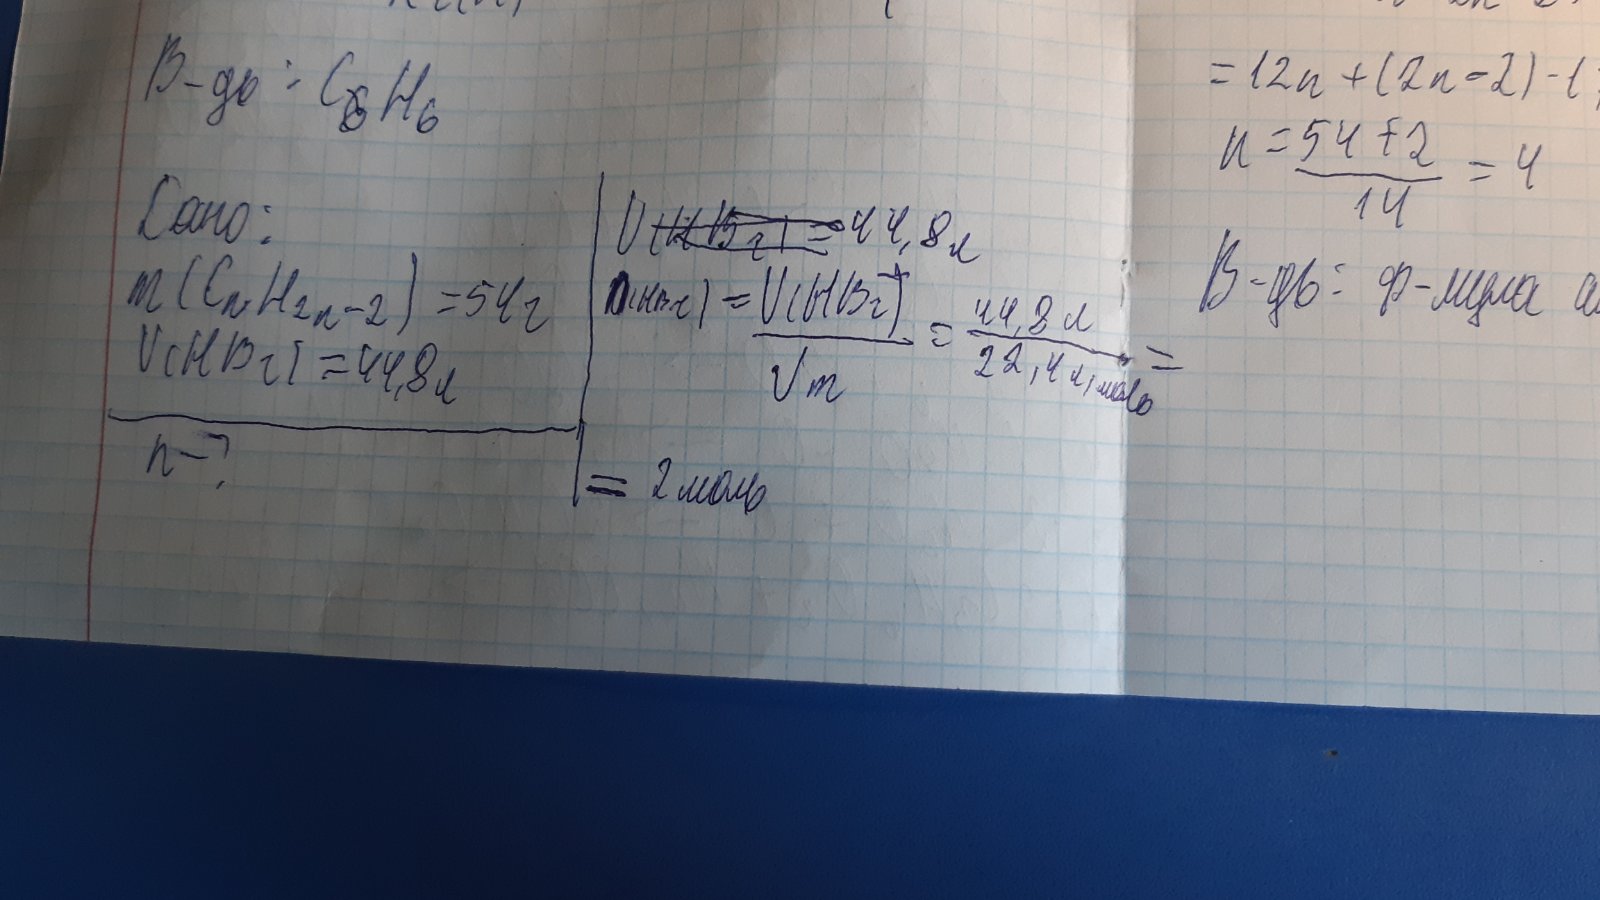 В-дь: C6H6
Дано:
m(CnH2n-2) = 54г
V(HBr) = 44,8л
n-?
44,8л
n(HBr) = V(HBr) / Vm = 44,8л / 22,4л/моль =
= 2моль
= 12n + (2n-2)·1
n = 54+2 / 14 = 4
В-дь: ф-мула